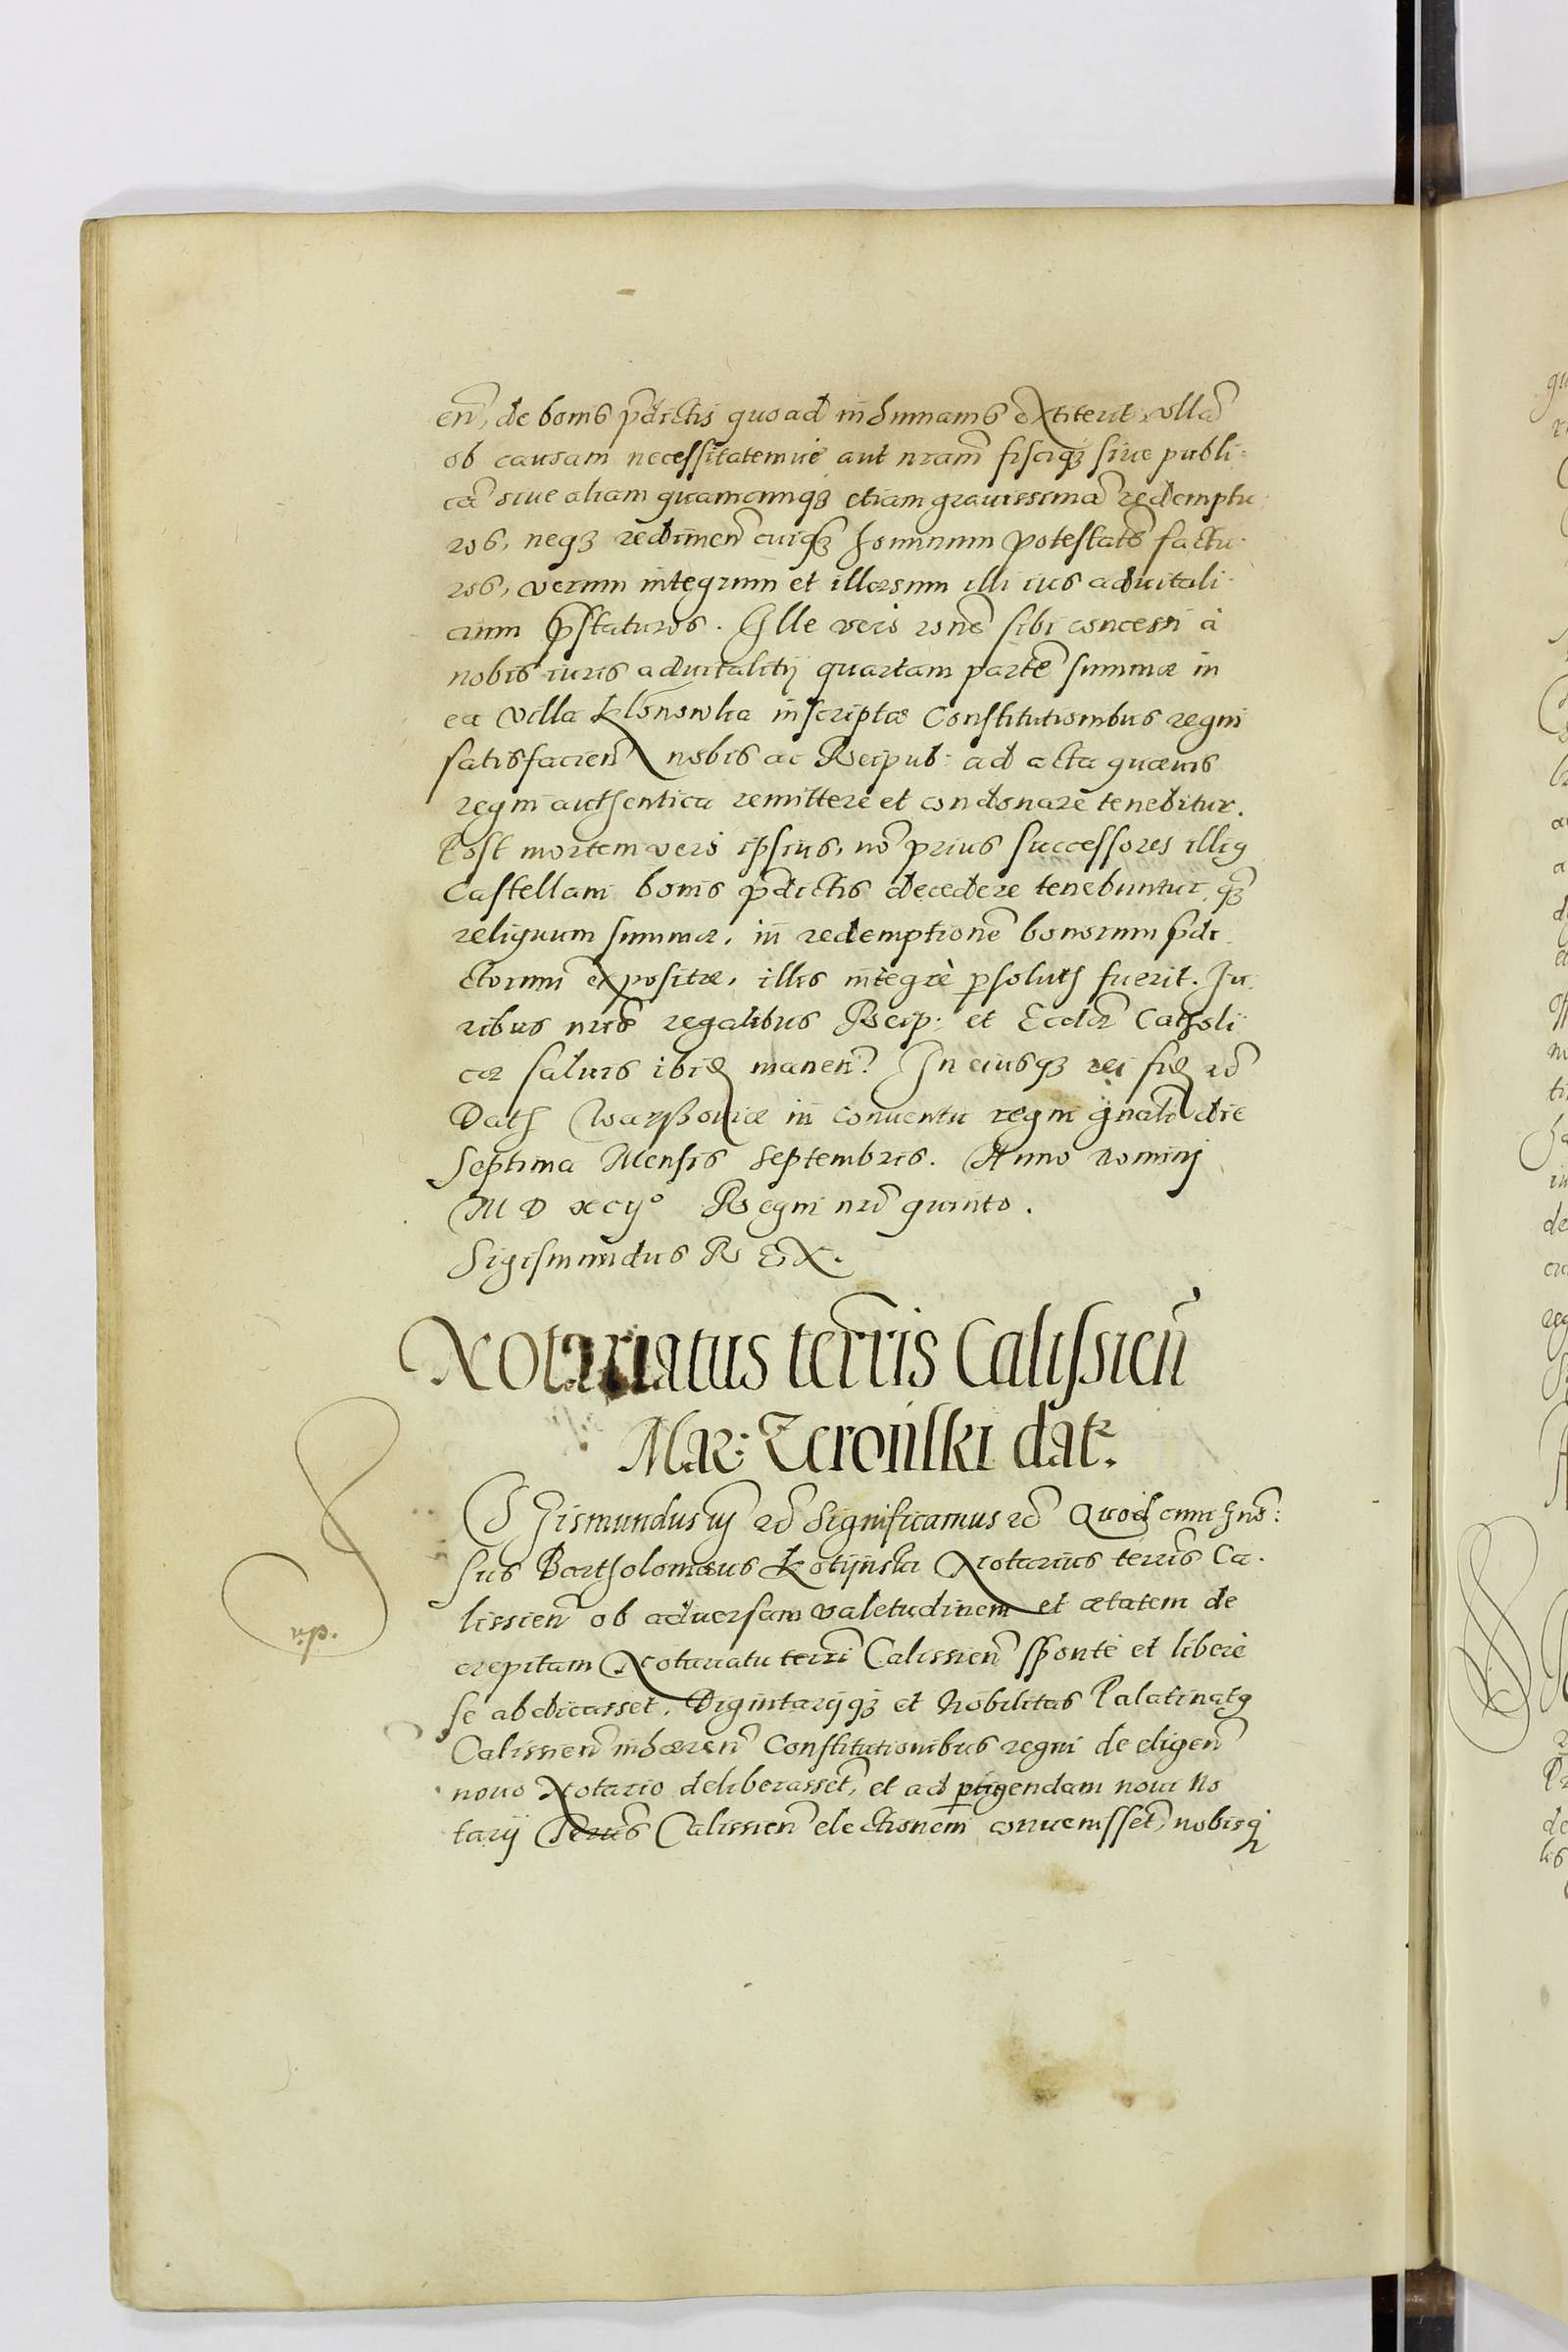 en, de bonis pdictis quoad in humanis extiterit, ulla
ob causam necessitatemue aut nram fisciq; siue publi-
ca siue aliam quamcunq; etiam grauissima redemptu-
ros, neq; redimen cuiq; hominum potestate factu-
ros, verum integrum et illaesum illi ius aduitali-
cium pstaturos. Ille vero rone sibi concessi à
nobis iuris aduitalitij quartam parte summae in
ea villa Klonowka inscriptae Constitutionibus regni
satisfacien nobis ac Reipub: ad acta quaeuis
regni authentica remittere et condonare tenebitur.
Post mortem vero ipsius, no prius successores illiq
Castellani bonis pdictis decedere tenebuntur, q;
reliquum summae, in redemptione bonorum pdi-
ctorum expositae, illis integrè psolut fuerit. Iu-
ribus nris regalibus Reip: et Eccliae Catholi-
cae saluis ibid manen. In cuiusq; rei fid
Dat Warssouiae in conuentu regni gnali die
septima Mensis Septembris. Anno Domini
M D XCij° Regni nri quinto.
Sigismundus REX.
Notariatus terris Calissien
Mar: Zeronski dat.
Sigismundus iij Significamus Quod cum gno:
sus Bartholomaeus Kotijnski Notarius terris Ca-
lissien ob aduersam valetudinem et aetatem de
crepitam Notariatu terri Calissien sponte et liberè
se abdicasset, Dignitarijq; et Nobilitas Palatinatq
Calissien inhaeren Constitutionibus regni de eligen
nouo Notario deliberasset, et ad peragendam noui No
tarij Terris Calissien electionem conuenisset, nobisq